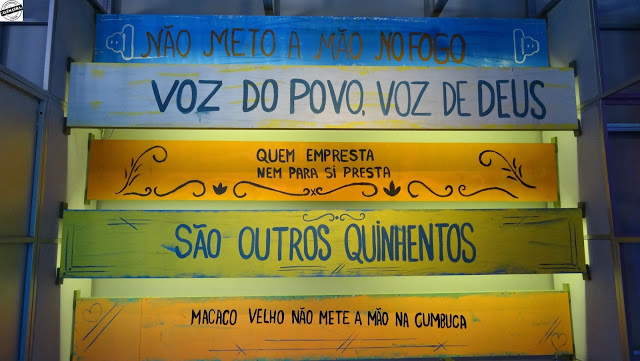 NÃO METO A MÃO NO FOGO
VOZ DO POVO, VOZ DE DEUS
QUEM EMPRESTA
NEM PARA SI PRESTA
SÃO OUTROS QUINHENTOS
MACACO VELHO NÃO METE A MÃO NA CUMBUCA